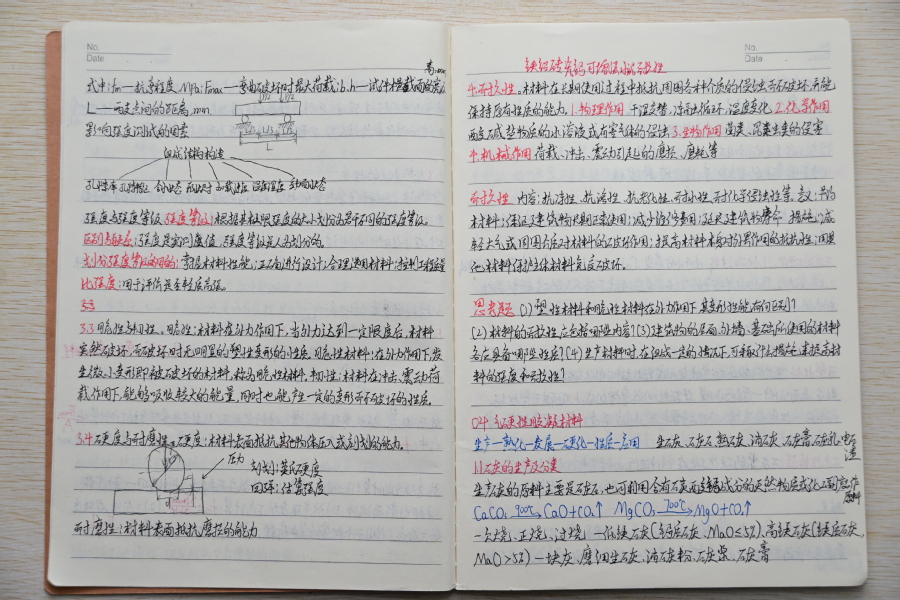 No.
Date
式中:fm—抗弯程度,MPa;Fmax—弯曲破坏时最大荷载;b、h—试件横截面的宽、高,mm
L—两支点间的距离,mm
影响强度测试的因素
组成结构构造
孔隙率 孔隙特征 含水状态 形状尺寸 加载速度 温度湿度 表面状态
强度与强度等级 强度等级:根据其极限强度的大小划分为若干不同的强度等级。
区别与联系:强度是实测值,强度等级是人为划分的。
划分强度等级的目的:掌握材料性能;正确进行设计;合理选用材料;控制工程质量
比强度:用于评价是否轻质高强。
3.3
3.3 脆性与韧性。脆性:材料在外力作用下,当外力达到一定限度后,材料
突然破坏,而破坏时无明显的塑性变形的性质。脆性材料:在外力作用下,发
生微小变形即被破坏的材料,称为脆性材料。韧性:材料在冲击、震动荷
载作用下,能够吸收较大的能量,同时也能产生一定的变形而不破坏的性质。
3.4 硬度与耐磨性。硬度:材料表面抵抗其他物体压入或刻划的能力。
压力
刻划:莫氏硬度
回弹:估算强度
d
耐磨性:材料表面抵抗磨损的能力
No.
Date
4.耐久性。材料在长期使用过程中抵抗周围各种介质的侵蚀而不破坏,并能
保持原有性质的能力。1.物理作用 干湿交替,冻融循环,温度变化 2.化学作用
酸、碱、盐物质的水溶液或有害气体的侵蚀 3.生物作用 菌类、昆虫的侵害
4.机械作用 荷载、冲击、震动引起的磨损、磨耗等
耐久性 内容:抗冻性,抗渗性,抗老化性,耐水性,耐化学侵蚀性等。意义:节约
材料;保证建筑物长期正常使用;减少维修费用;延长建筑物寿命。措施:减
轻大气或周围介质对材料的破坏作用;提高材料本身对外界作用的抵抗性;用其
他材料保护主体材料免受破坏。
思考题 (1)塑性材料和脆性材料在外力作用下,其变形性能有何区别?
(2)材料的耐久性应包括哪些内容?(3)建筑物的屋面、外墙、基础所使用的材料
各应具备哪些性质?(4)生产材料时,在组成一定的情况下,可采取什么措施来提高材
料的强度和耐久性?
04 气硬性胶凝材料
生产—熟化—发展—硬化—性质—应用 生石灰、石灰石、熟石灰、消石灰、石灰膏、石灰乳、电石渣
1.1石灰的生产及分类
生产石灰的原料主要是石灰石,也可利用含有石灰质成分的天然物质或化工副产品作原料
CaCO₃ 900℃ CaO+CO₂↑ MgCO₃ 700℃ MgO+CO₂↑
—欠烧、正烧、过烧 —低镁石灰(钙质石灰,MaO≤5%),高镁石灰(镁质石灰,
MaO>5%) —块灰、磨细生石灰、消石灰粉、石灰浆、石灰膏